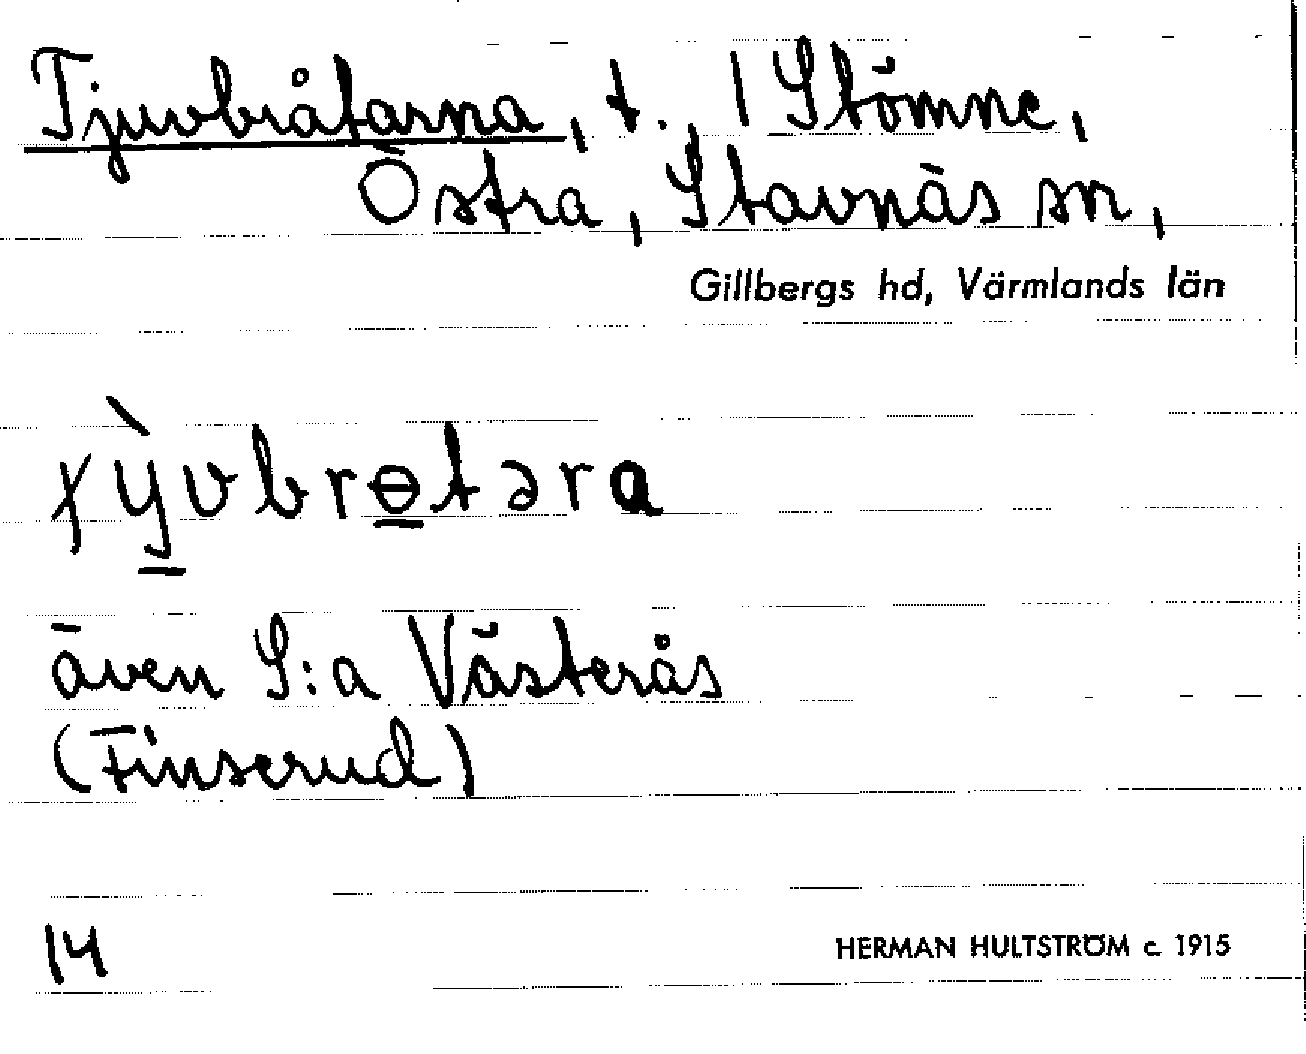 Tjuvbråtarna, t., 1 Stömne,
Östra, Stavnäs sn,
Gillbergs hd, Värmlands län
χỳ̲vbrɵ̲təra
även S:a Västerås
(Finserud)
14
HERMAN HULTSTRÖM c. 1915